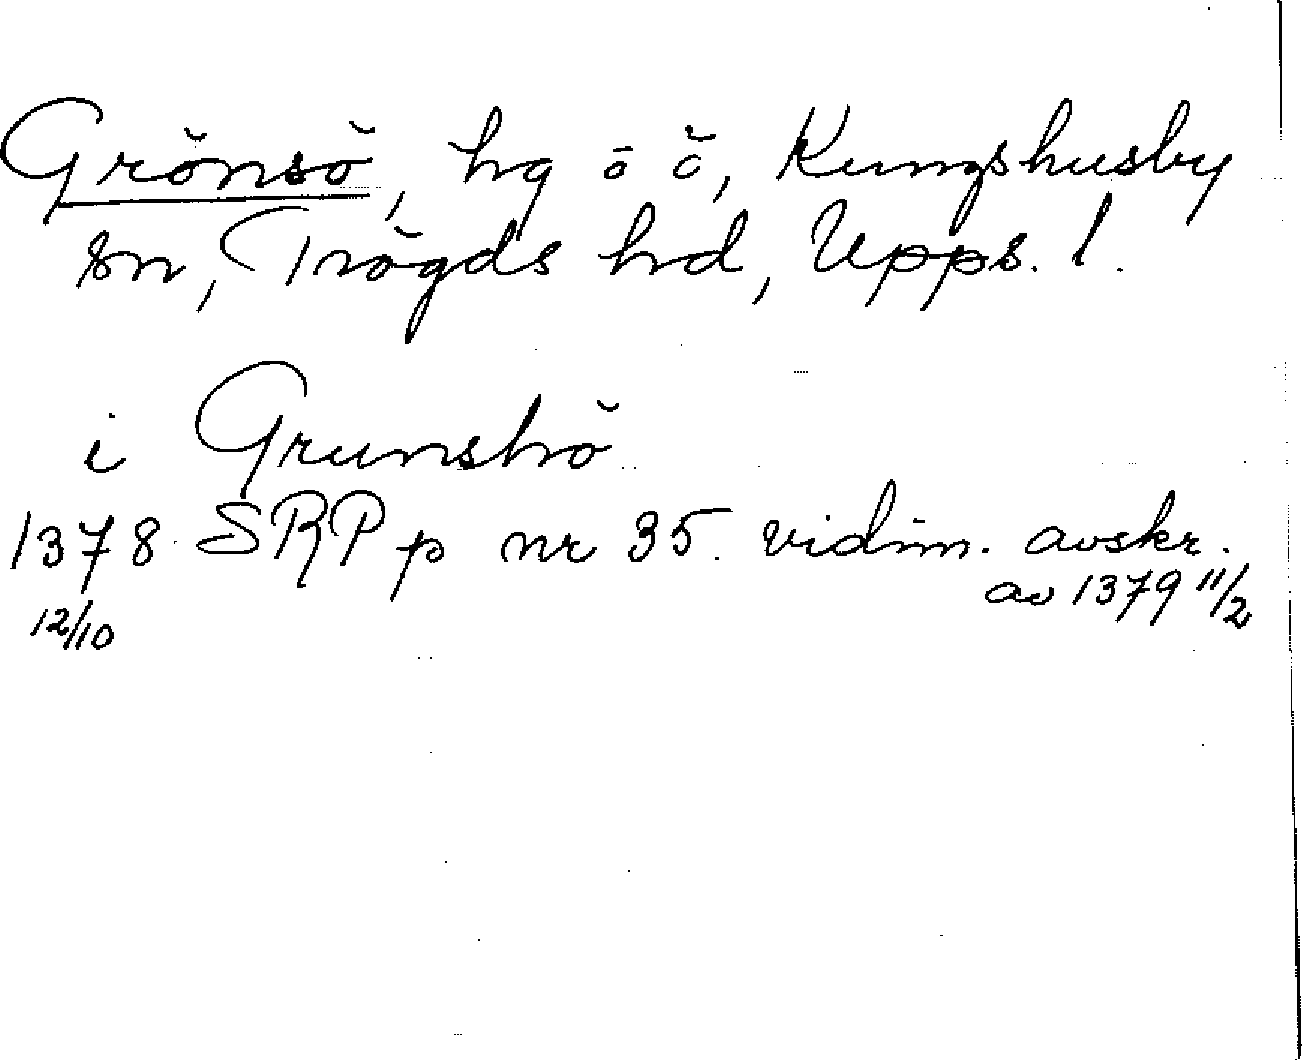 Grönsö, hg o ö, Kungshusby
sn, Trögds hd, Upps. l.
i Grunshö
1378 SRPp nr 35. vidim. avskr.
12/10
av 1379 11/2